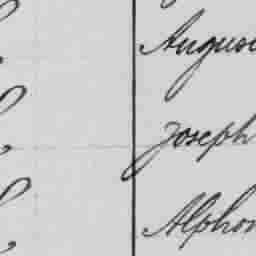 Augus
Joseph
Alphon